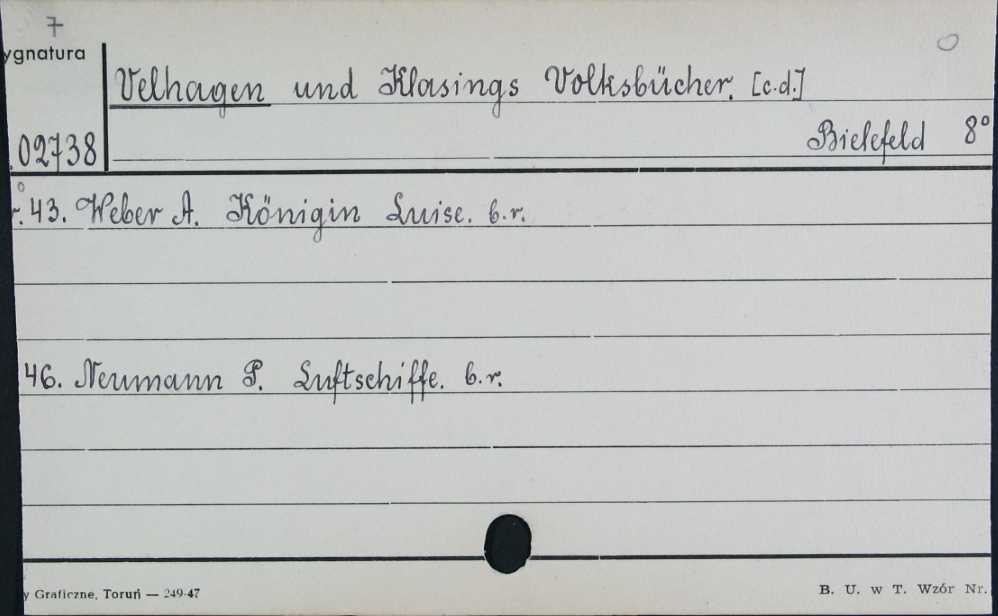 7
ygnatura
Velhagen und Klasings Volksbücher. [c.d.]
Bielefeld 8°
02738
43. Weber A. Königin Luise. b.r.
46. Neumann P. Luftschiffe. b.r.
y Graficzne, Toruń — 249-47
B. U. w T. Wzór Nr.